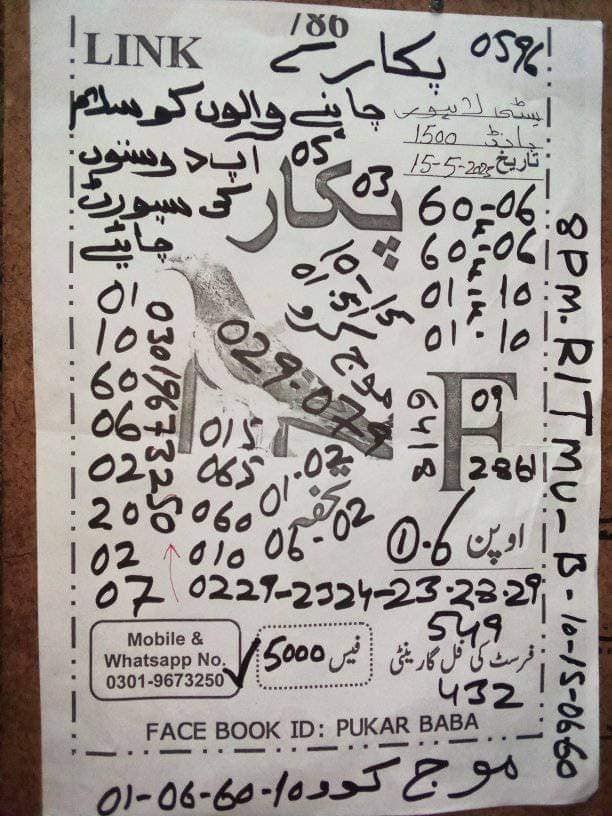 786
LINK
پکارے
0596
چاہنے والوں کو سلام
سٹی لاہور
بانڈ 1500
تاریخ 15-5-2025
آپ دوستوں
05
کی سپورٹ
چاہئے
پکار
03
60-06
60-06
01-10
01-10
10-15
01.51.15
موج کرو
029-079
01
10
60
06
02
20
02
07
03019673250
015
065
060
010
01.02
تحفہ
06-02
F
09
286
6418
اوپن 1.6
0229-2324-23-28-29
549
Mobile &
Whatsapp No.
0301-9673250
فیس 5000
فرسٹ کی فل گارینٹی
432
FACE BOOK ID: PUKAR BABA
موج کرو
01-06-60-10
8PM. RITMU-B-10-15-0660